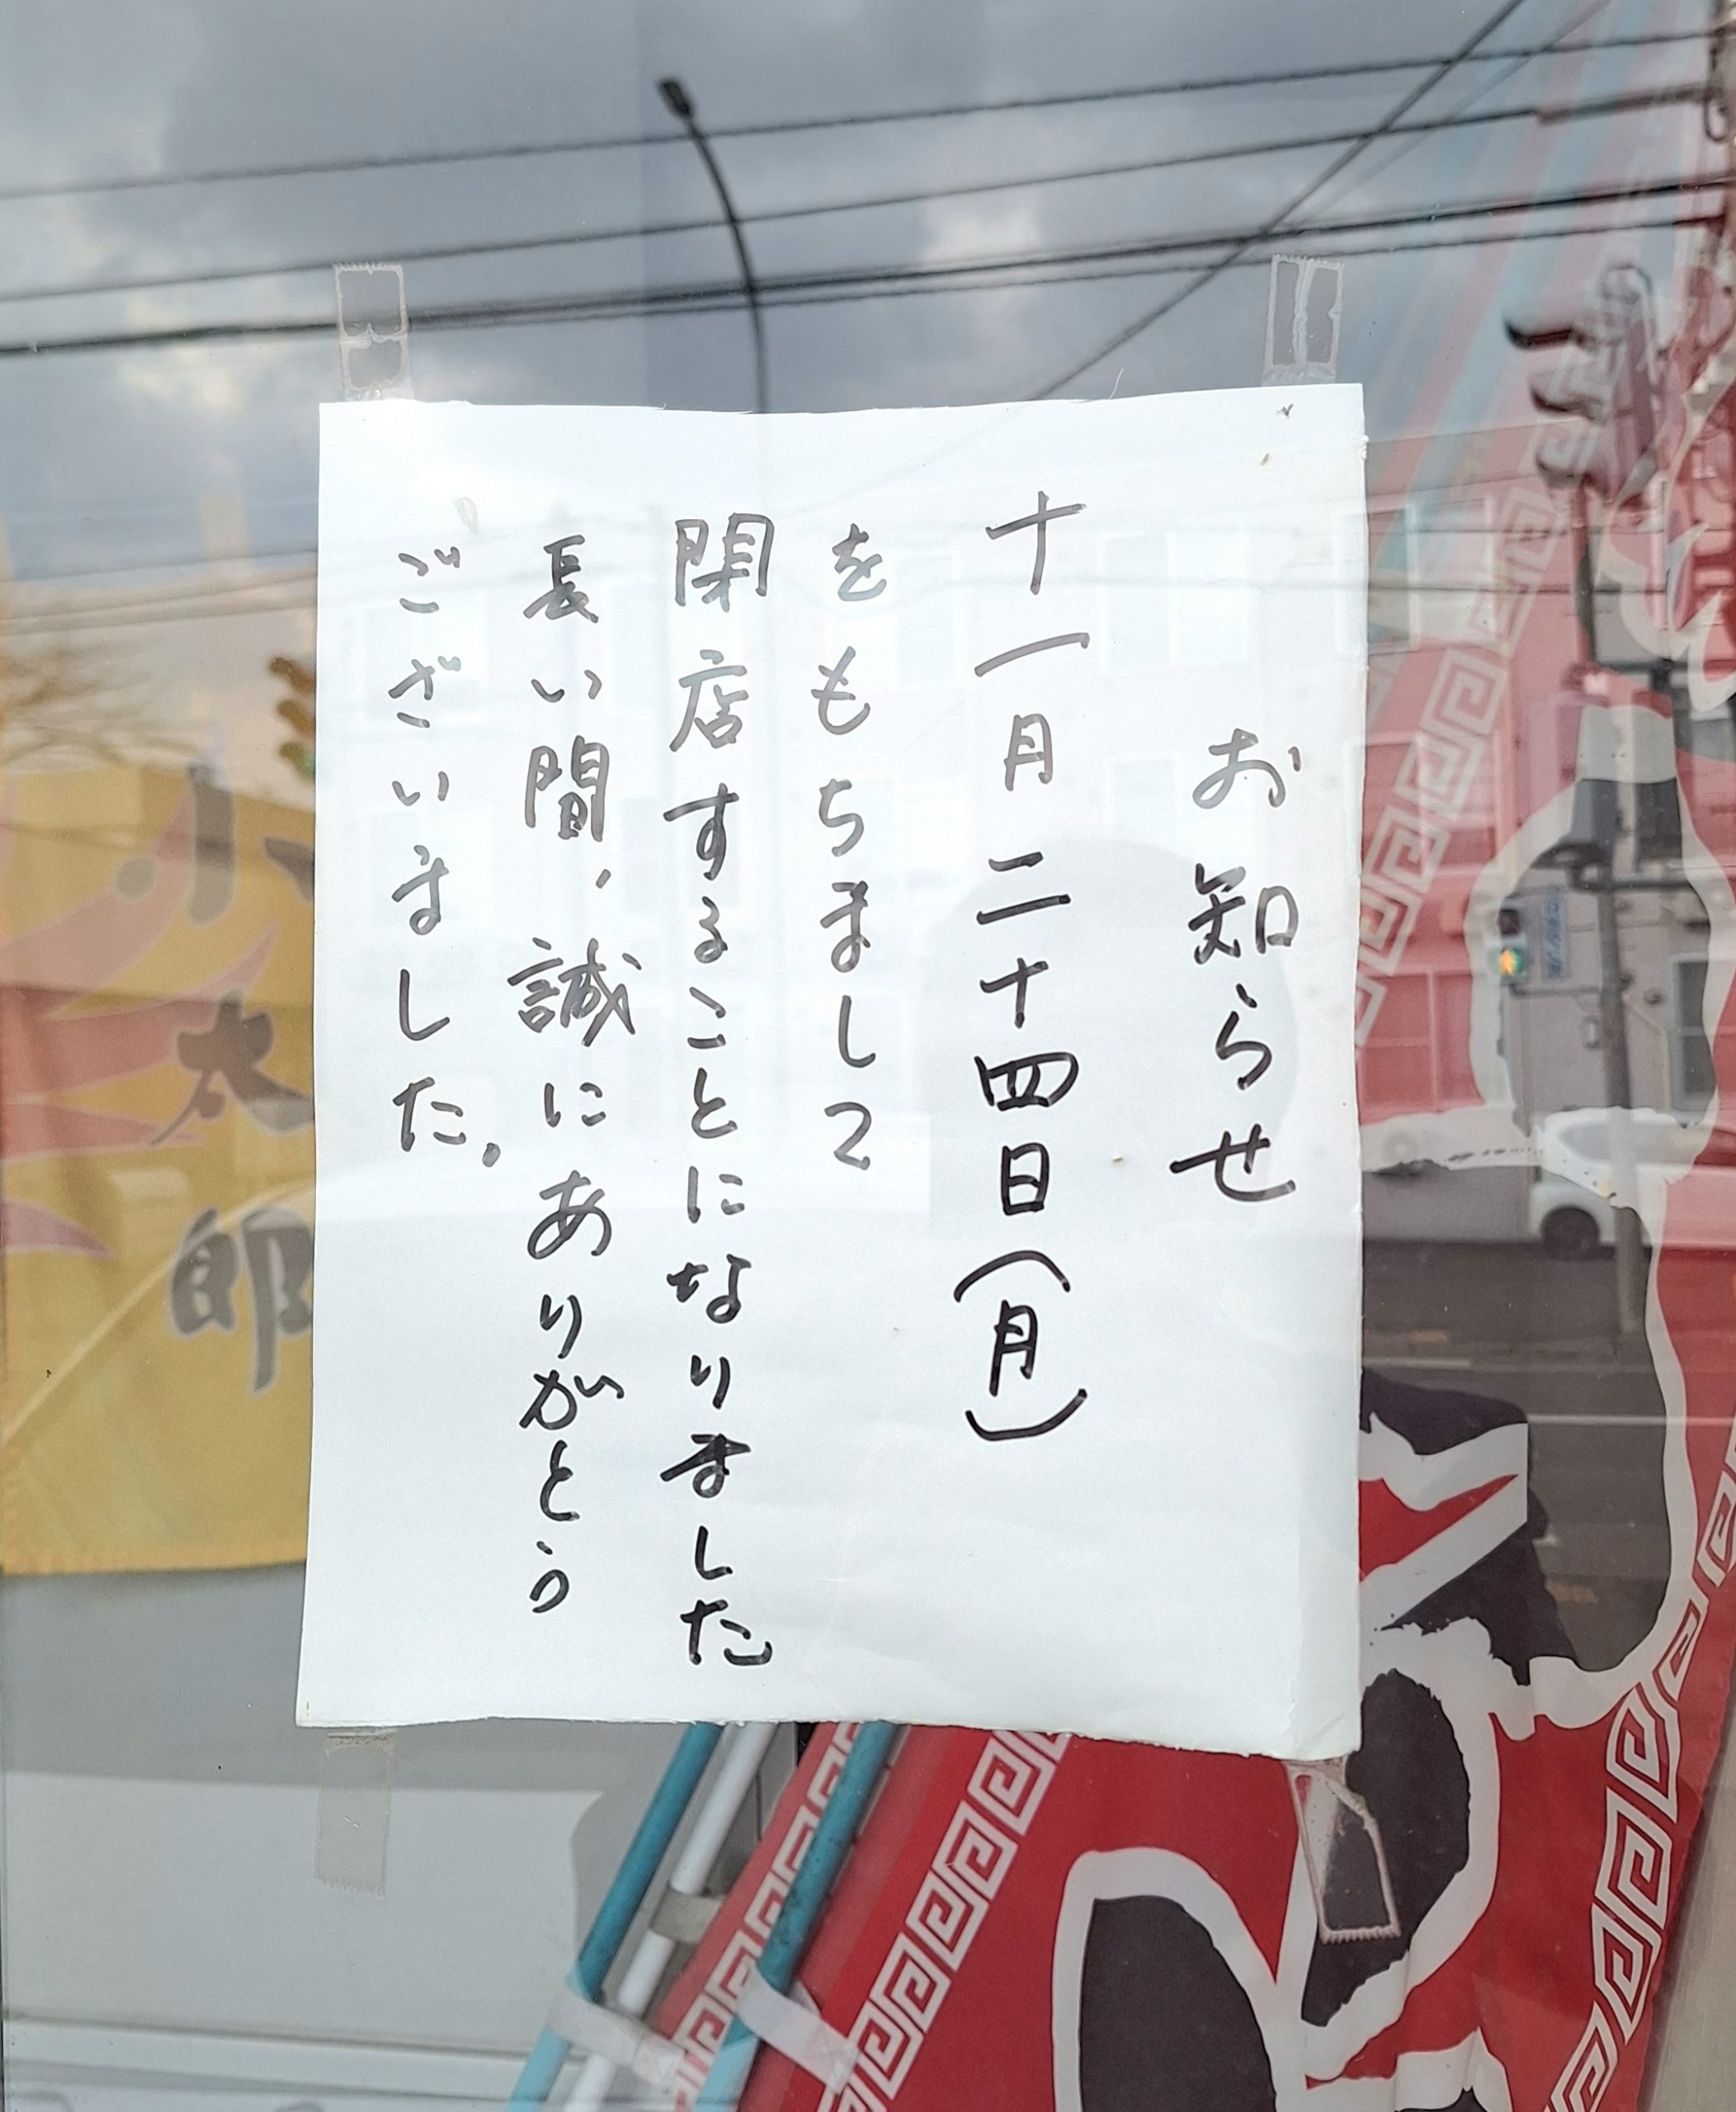 お知らせ
十一月二十四日(月)
をもちまして
閉店することになりました
長い間、誠にありがとう
ございました。
太郎